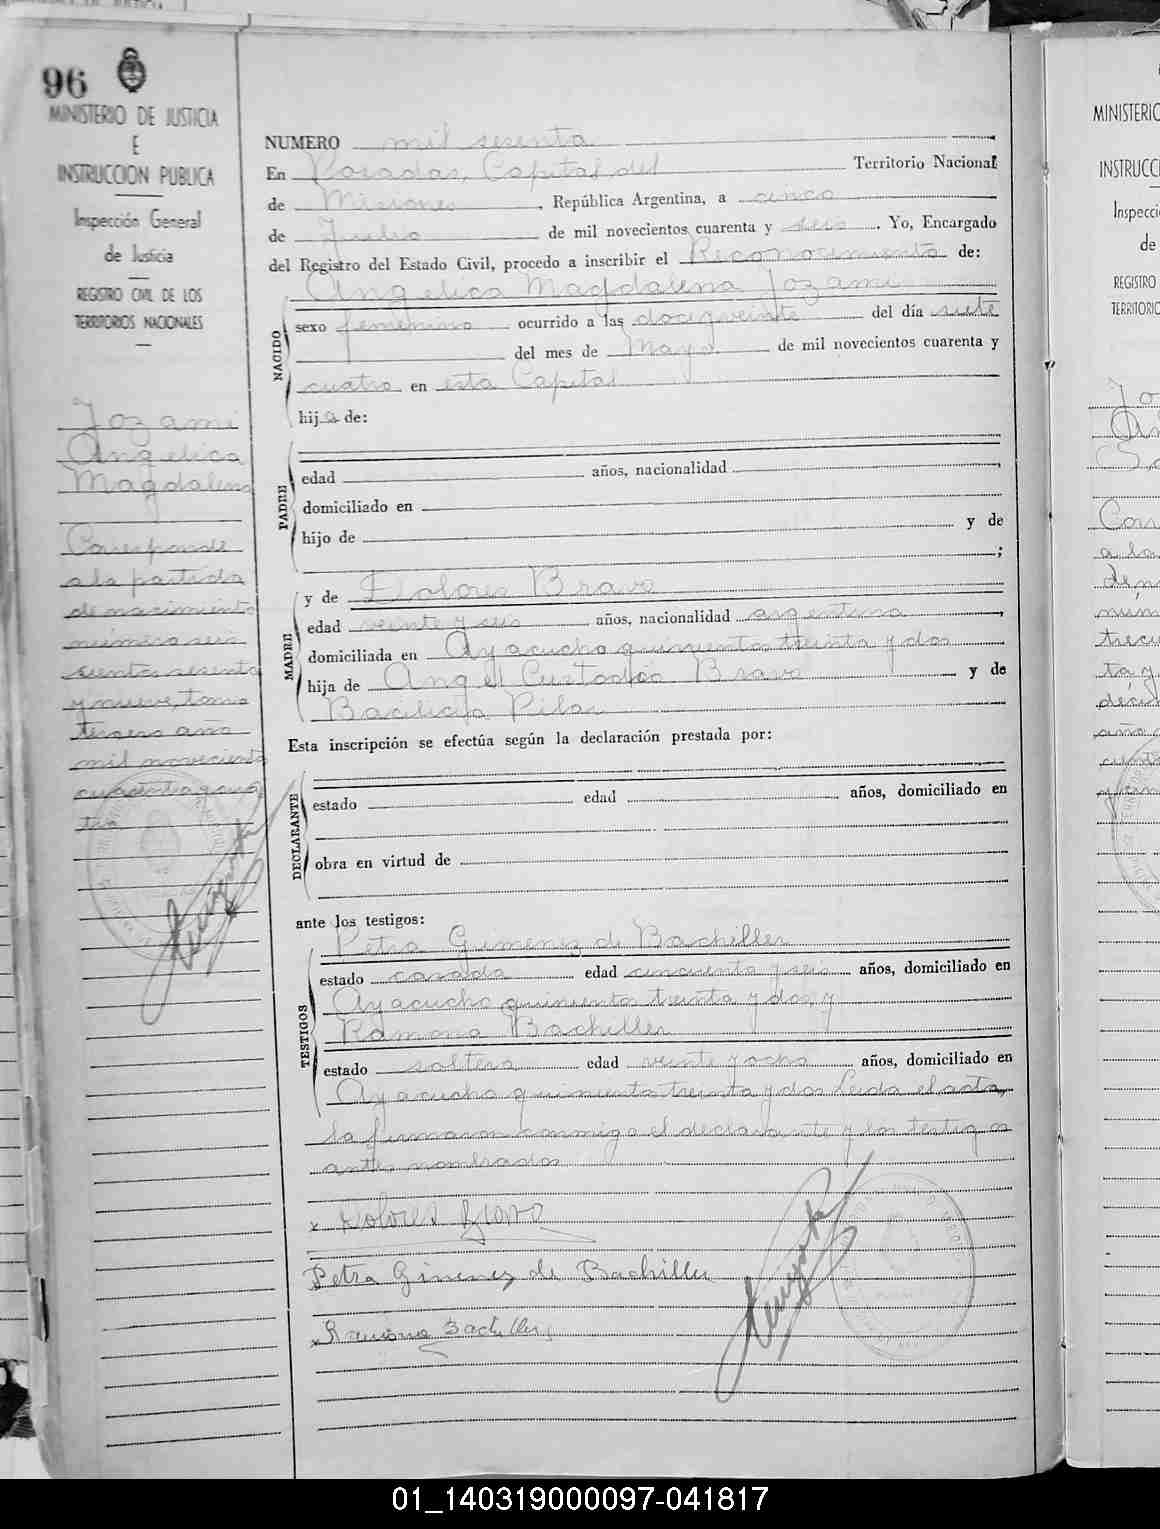 96
MINISTERIO DE JUSTICIA
E
INSTRUCCION PUBLICA
Inspección General
de Justicia
REGISTRO CIVIL DE LOS
TERRITORIOS NACIONALES
Jozami
Angelica
Magdalena
Corresponde
a la partida
de nacimiento
número seis
cientos sesenta
y nueve, tomo
tercero año
mil novecientos
cuarenta y cua
tro
NUMERO mil sesenta
En Posadas, Capital del Territorio Nacional
de Misiones, República Argentina, a cinco
de Julio de mil novecientos cuarenta y seis. Yo, Encargado
del Registro del Estado Civil, procedo a inscribir el Reconocimiento de:
Angelica Magdalena Jozami
NACIDO
sexo femenino ocurrido a las doce y veinte del día siete
del mes de Mayo de mil novecientos cuarenta y
cuatro en esta Capital
hija de:
PADRE
edad años, nacionalidad
domiciliado en
hijo de y de
;
MADRE
y de Dolores Bravo
edad veinte y seis años, nacionalidad argentina,
domiciliada en Ayacucho quinientos treinta y dos
hija de Angel Custodio Bravo y de
Pilar
Esta inscripción se efectúa según la declaración prestada por:
DECLARANTE
estado edad años, domiciliado en
obra en virtud de
ante los testigos:
TESTIGOS
Petra Gimenez de Bachiller
estado casada edad cincuenta y seis años, domiciliado en
Ayacucho quinientos treinta y dos y
Ramona Bachiller
estado soltera edad veinte y ocho años, domiciliado en
Ayacucho quinientos treinta y dos Leida el acta,
la firmaron conmigo el declarante y los testigos
antes nombrados
x Dolores Bravo
Petra Gimenez de Bachiller
x Ramona Bachiller
MINISTERIO
INSTRUCC
Inspecci
de
REGISTRO
TERRITORIO
01_140319000097-041817